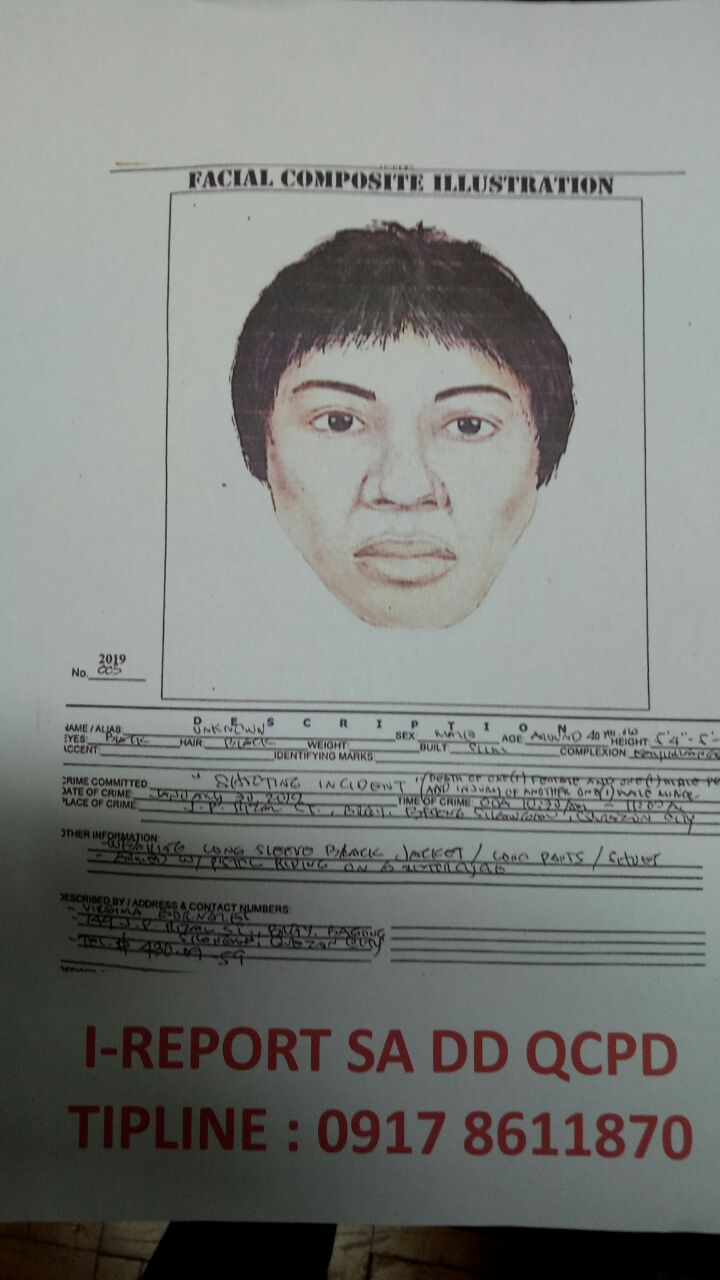 FACIAL COMPOSITE ILLUSTRATION
2019
No. 005
D E S C R I P T I O N
NAME / ALIAS: UNKNOWN SEX MALE AGE AROUND 40 HEIGHT 5'4"-5'
EYES: BLACK HAIR BLACK WEIGHT: BUILT SLIM COMPLEXION
ACCENT: IDENTIFYING MARKS:
CRIME COMMITTED " SHOOTING INCIDENT " (DEATH OF ONE(1) FEMALE AND ONE(1) MALE
DATE OF CRIME JANUARY 30 2019 TIME OF CRIME: 10:30AM - 11:00AM
(AND INJURY OF ANOTHER ONE(1) MALE MINOR
PLACE OF CRIME: J.P. RIZAL ST., BRGY. BAGONG SILANGAN, QUEZON CITY
OTHER INFORMATION:
- WEARING LONG SLEEVE BLACK JACKET / LONG PANTS / SHOES
- ARMED W/ PISTOL RIDING ON A MOTORCYCLE
DESCRIBED BY / ADDRESS & CONTACT NUMBERS:
- VIRGINIA
J.P. RIZAL ST., BRGY. BAGONG
SILANGAN, QUEZON CITY
- TEL. #
I-REPORT SA DD QCPD
TIPLINE : 0917 8611870